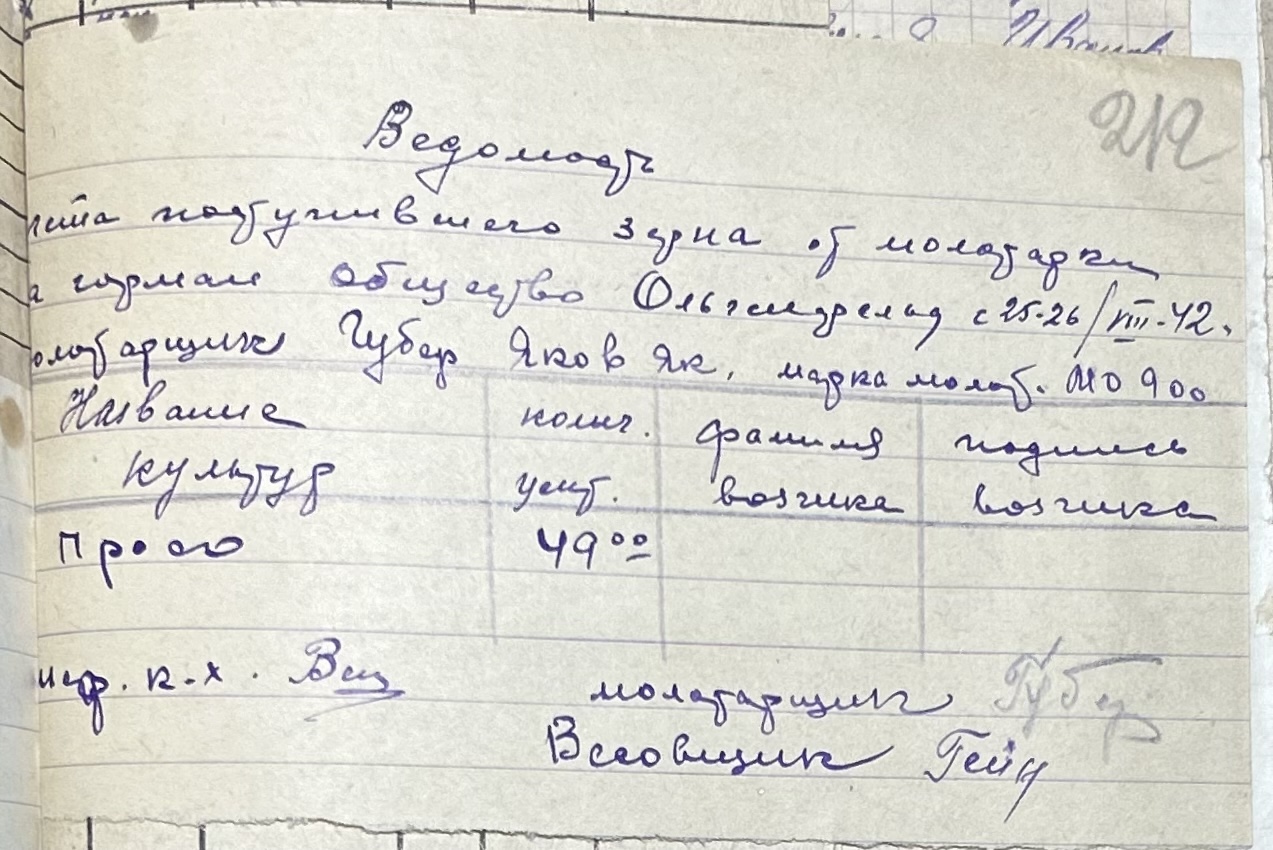 212
Ведомость
поступившего зерна от молотарки
герман общество Ольгендфельд с 25-26/VIII-42.
молотарщик Губер Яков Як. марка молот. МО 900
Название культур | колич. цент. | фамилия возчика | подпись возчика
Просо | 49 00
к-х.
молотарщик Губер
Весовщик Гейн